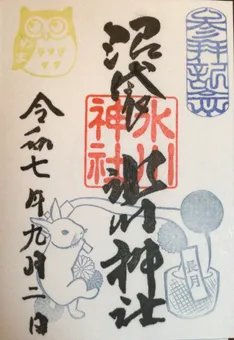 参拝記念
沼袋 氷川神社
氷川
神社
令和七年九月二日
長月